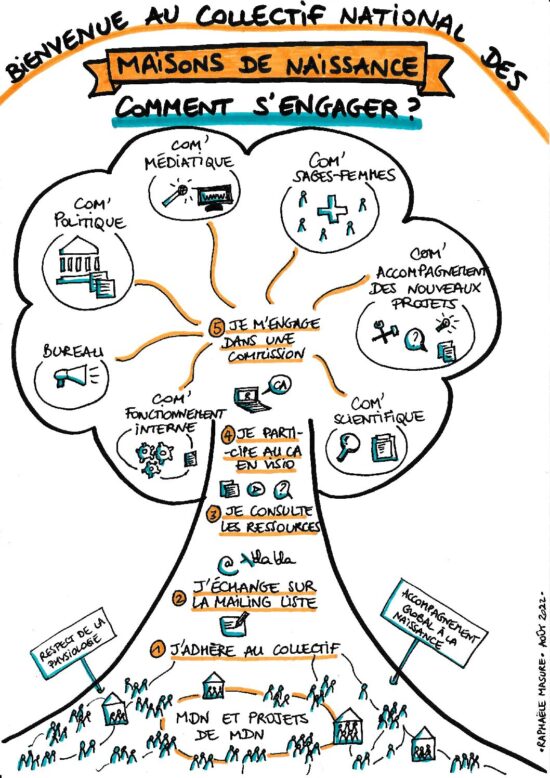 BIENVENUE AU COLLECTIF NATIONAL DES
MAISONS DE NAISSANCE
COMMENT S'ENGAGER ?
COM'
MÉDIATIQUE
COM'
SAGES-FEMMES
COM'
POLITIQUE
COM'
ACCOMPAGNEMENT
DES NOUVEAUX
PROJETS
BUREAU
COM'
FONCTIONNEMENT
INTERNE
COM'
SCIENTIFIQUE
5 JE M'ENGAGE
DANS UNE
COMMISSION
CA
4 JE PARTI-
CIPE AU CA
EN VISIO
?
?
3 JE CONSULTE
LES RESSOURCES
@ blabla
2 J'ÉCHANGE SUR
LA MAILING LISTE
1 J'ADHÈRE AU COLLECTIF
RESPECT DE LA
PHYSIOLOGIE
ACCOMPAGNEMENT
GLOBAL À LA
NAISSANCE
MDN ET PROJETS
DE MDN
•RAPHAËLE MASURE• AOÛT 2022•